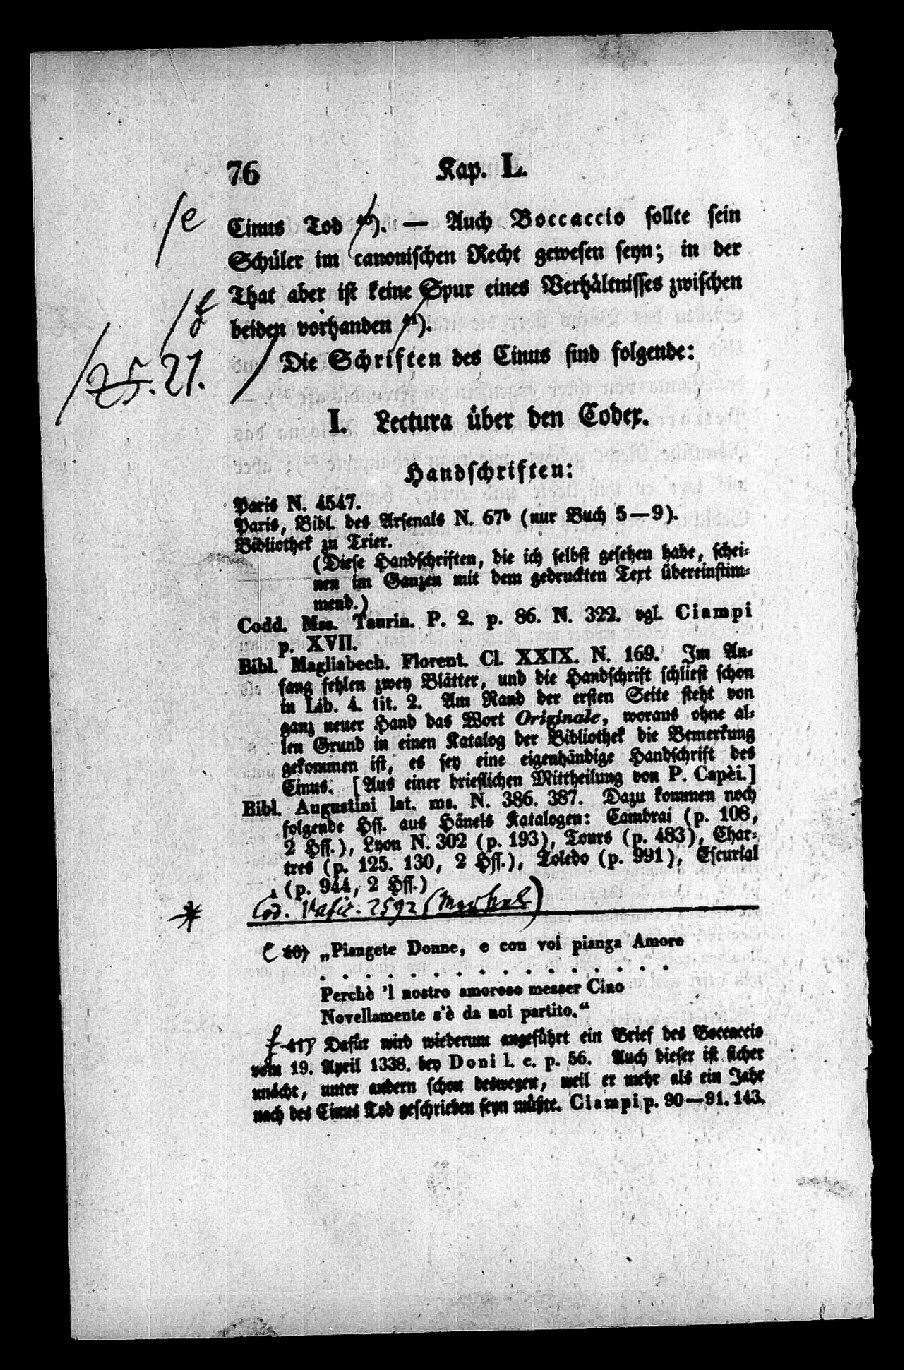 76 Kap. L.
/e
Cinus Tod ⁴⁰). — Auch Boccaccio sollte sein
Schüler im canonischen Recht gewesen seyn; in der
That aber ist keine Spur eines Verhältnisses zwischen
/f
beiden vorhanden ⁴¹).
/25.21.
Die Schriften des Cinus sind folgende:
I. Lectura über den Codex.
Handschriften:
Paris N. 4547.
Paris, Bibl. des Arsenals N. 67ᵇ (nur Buch 5—9).
Bibliothek zu Trier.
(Diese Handschriften, die ich selbst gesehen habe, schei-
nen im Ganzen mit dem gedruckten Text übereinstim-
mend.)
Codd. Mss. Taurin. P. 2. p. 86. N. 322. vgl. Ciampi
p. XVII.
Bibl. Magliabech. Florent. Cl. XXIX. N. 169. Im An-
fang fehlen zwey Blätter, und die Handschrift schließt schon
in Lib. 4. tit. 2. Am Rand der ersten Seite steht von
ganz neuer Hand das Wort Originale, woraus ohne al-
len Grund in einen Katalog der Bibliothek die Bemerkung
gekommen ist, es sey eine eigenhändige Handschrift des
Cinus. [Aus einer brieflichen Mittheilung von P. Capèi.]
Bibl. Augustini lat. ms. N. 386. 387. Dazu kommen noch
folgende Hff. aus Hänels Katalogen: Cambrai (p. 108,
2 Hff.), Lyon N. 302 (p. 193), Tours (p. 483), Char-
tres (p. 125. 130, 2 Hff.), Toledo (p. 991), Escurial
(p. 944, 2 Hff.)
Cod. Vatic. 2592
e 40) „Piangete Donne, e con voi pianga Amore
. . . . . . . . . . . . . . . .
Perchè 'l nostro amoroso messer Cino
Novellamente s'è da noi partito.“
f 41) Dafür wird wiederum angeführt ein Brief des Boccaccio
vom 19. April 1338. bey Doni l. c. p. 56. Auch dieser ist sicher
unächt, unter andern schon deswegen, weil er mehr als ein Jahr
nach des Cinus Tod geschrieben seyn müßte. Ciampi p. 90—91. 143.